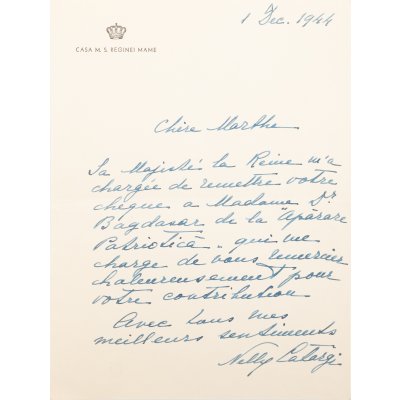 1 Dec. 1944
CASA M. S. REGINEI MAME
Chère Martha
Sa Majesté la Reine m'a
chargée de remettre votre
chèque a Madame Dr
Bagdasar de la "Apărare
Patriotică" qui me
charge de vous remercier
chaleureusement pour
votre contribution
Avec tous mes
meilleurs sentiments
Nelly Catargi